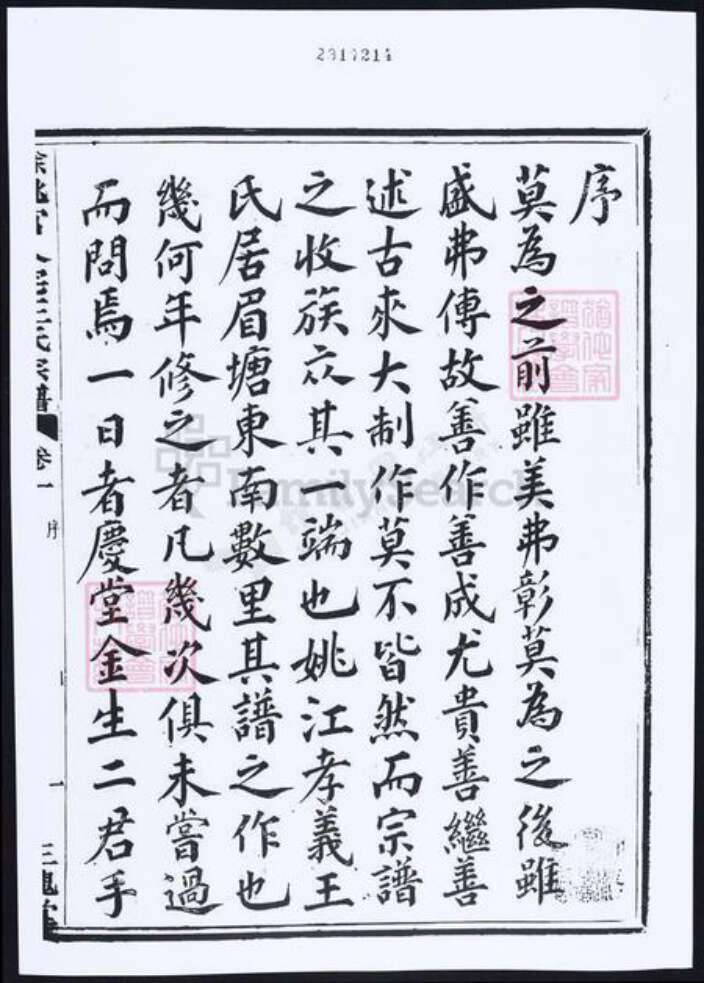 2317214
序
莫為之前雖美弗彰莫為之後雖
盛弗傳故善作善成尤貴善繼善
述古來大制作莫不皆然而宗譜
之收族衆其一端也姚江孝義王
氏居眉塘東南數里其譜之作也
幾何年修之者凡幾次俱未嘗過
而問焉一日者慶堂金生二君手
王氏宗譜 卷一 序 一 三槐堂
FamilySearch